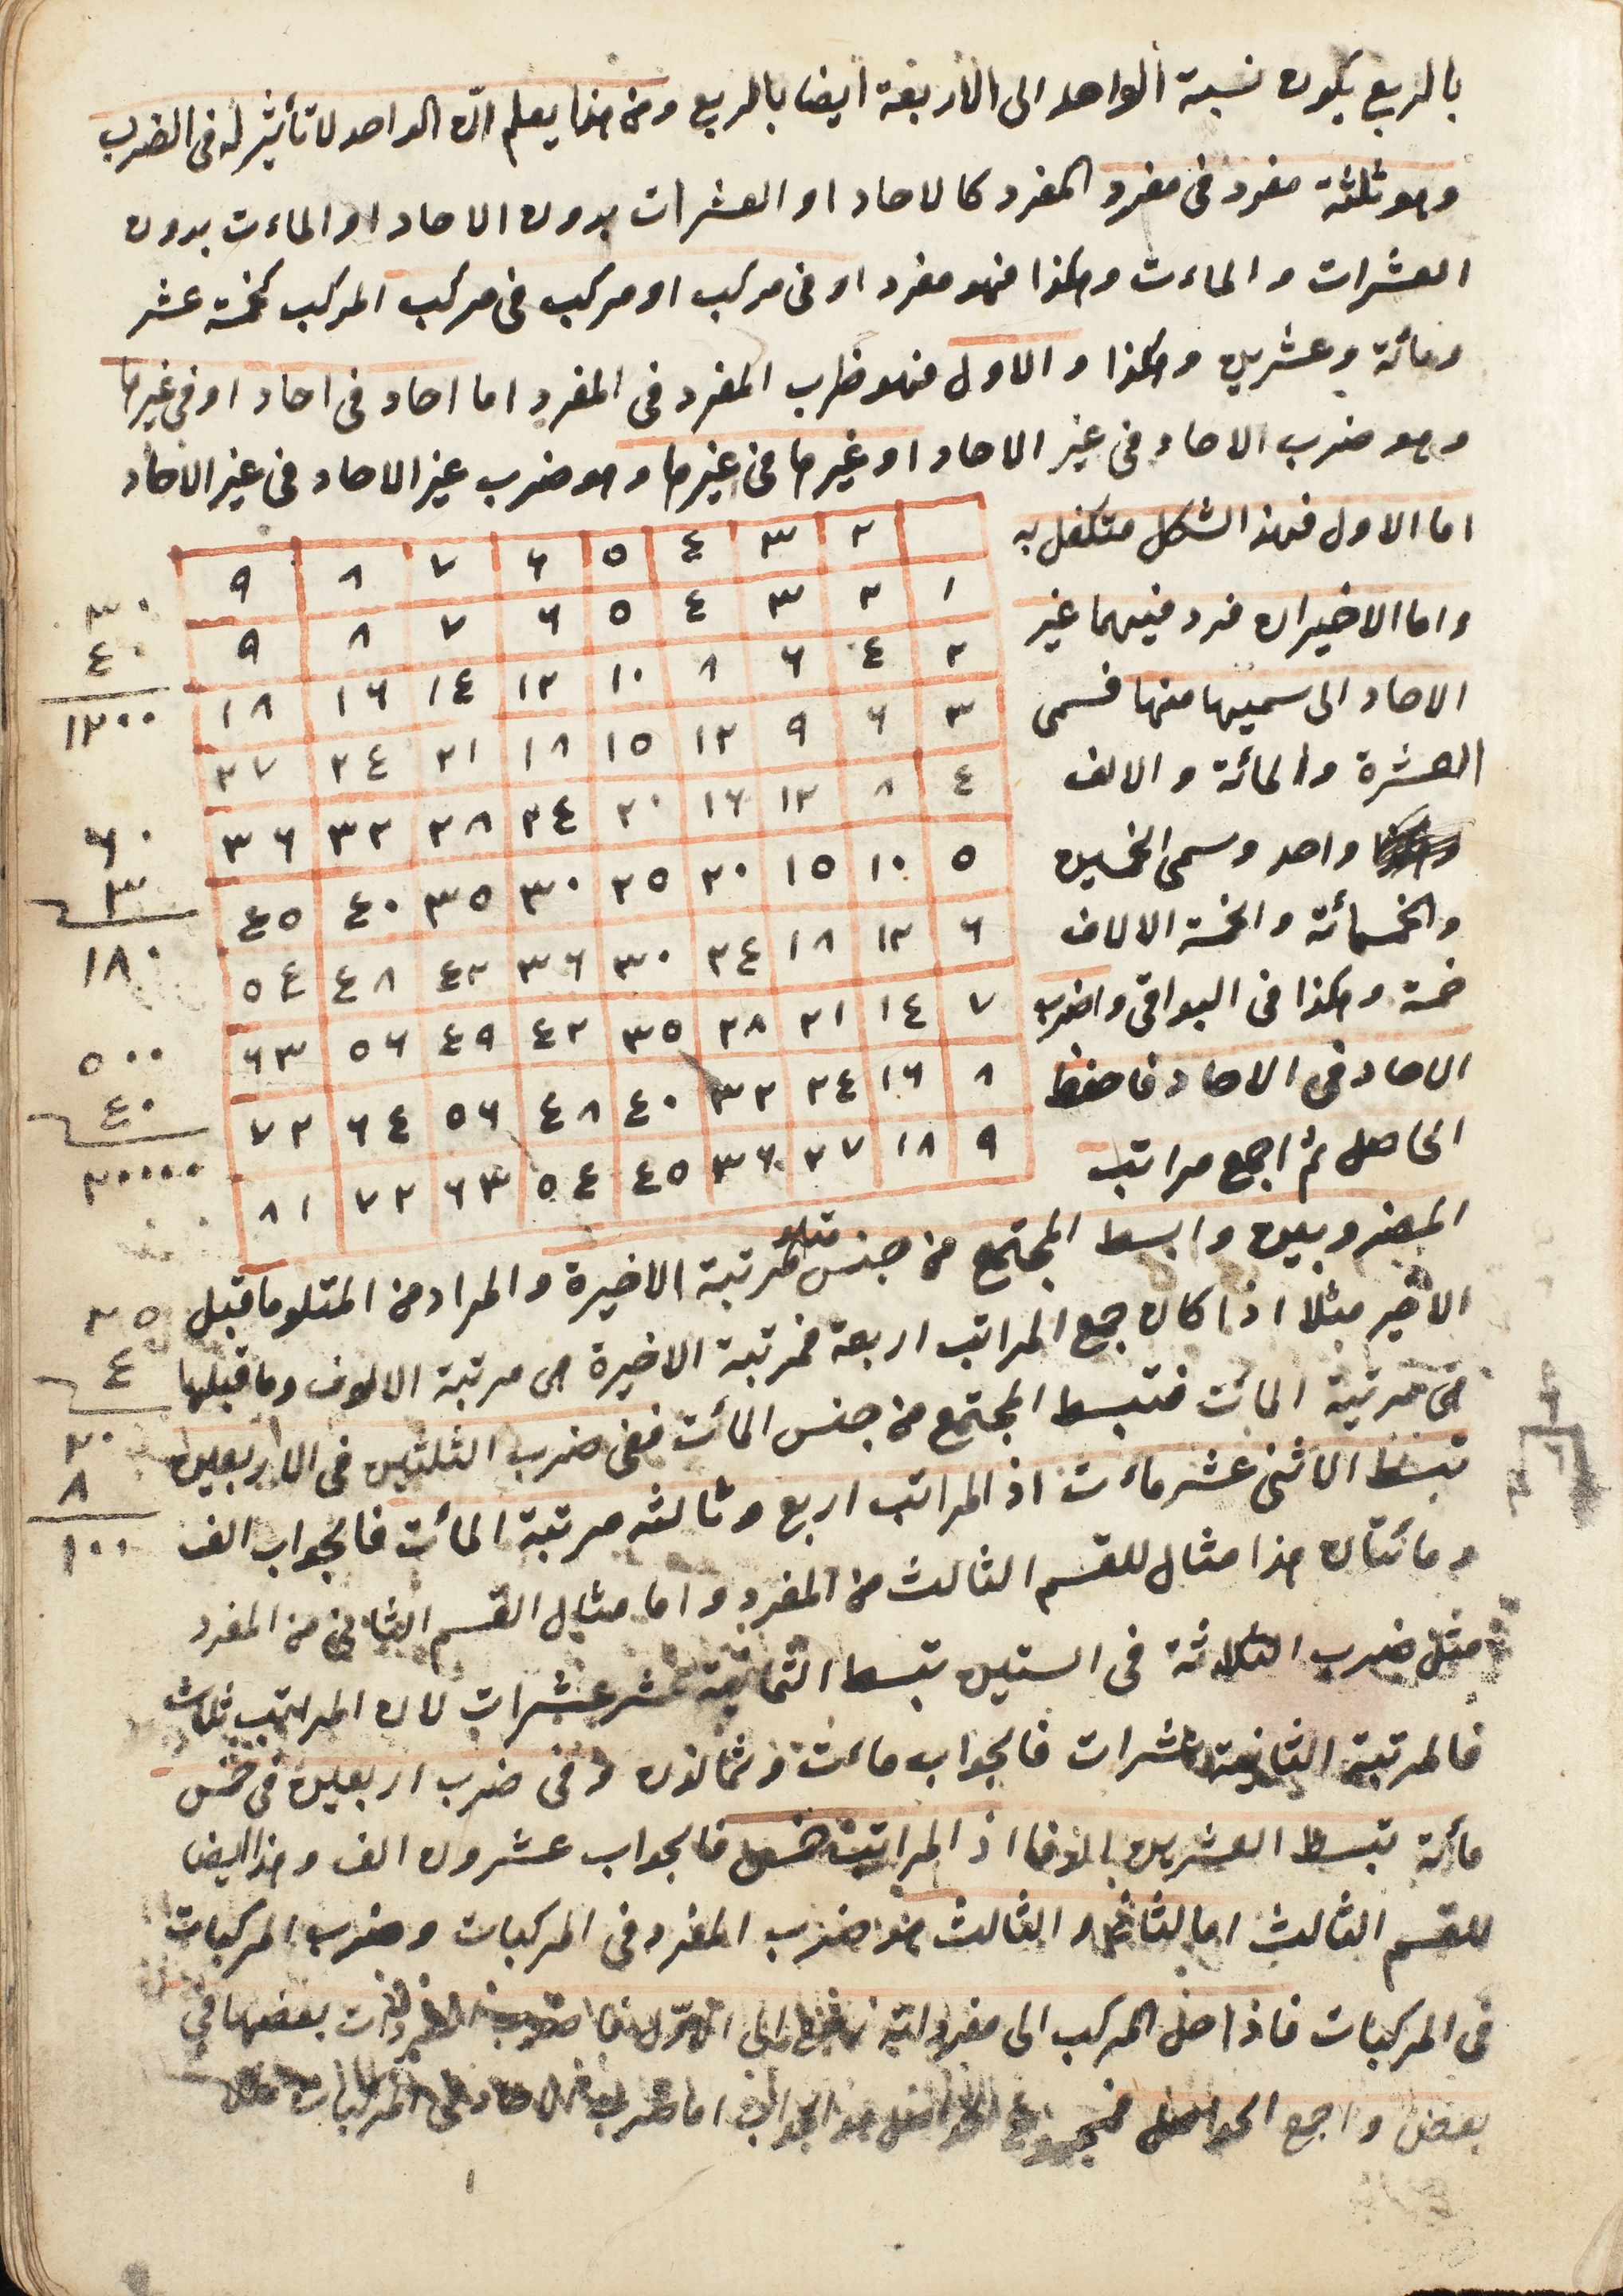 بالربع يكون نسبة الواحد الى الاربعة ايضا بالربع ومن هذا يعلم انّ الواحد لا تأثير له فى الضرب
وهو ثلثة مفرد فى مفرد المفرد كالاحاد او العشرات بدون الاحاد او الماءت بدون
العشرات والماءت وهكذا فهو مفرد او فى مركب او مركب فى مركب المركب كخمسة عشر
ومائة وعشرين وهكذا والاول فهو ضرب المفرد فى المفرد اما احاد فى احاد او فى غيرها
وهو ضرب الاحاد فى غير الاحاد او غيرها فى غيرها وهو ضرب غير الاحاد فى غير الاحاد
اما الاول فهذا الشكل متكفل به
واما الاخيران فرد فيهما غير
الاحاد الى سميها منها فسمى
العشرة والمائة والالف
واحد وسمى الخمسين
والخمسمائة والخمسة الالاف
خمسة وهكذا فى البواقى واضرب
الاحاد فى الاحاد فاحفظ
الحاصل ثم اجمع مراتب
٢ ٣ ٤ ٥ ٦ ٧ ٨ ٩
١ ٢ ٣ ٤ ٥ ٦ ٧ ٨ ٩
٢ ٤ ٦ ٨ ١٠ ١٢ ١٤ ١٦ ١٨
٣ ٦ ٩ ١٢ ١٥ ١٨ ٢١ ٢٤ ٢٧
٤ ٨ ١٢ ١٦ ٢٠ ٢٤ ٢٨ ٣٢ ٣٦
٥ ١٠ ١٥ ٢٠ ٢٥ ٣٠ ٣٥ ٤٠ ٤٥
٦ ١٢ ١٨ ٢٤ ٣٠ ٣٦ ٤٢ ٤٨ ٥٤
٧ ١٤ ٢١ ٢٨ ٣٥ ٤٢ ٤٩ ٥٦ ٦٣
٨ ١٦ ٢٤ ٣٢ ٤٠ ٤٨ ٥٦ ٦٤ ٧٢
٩ ١٨ ٢٧ ٣٦ ٤٥ ٥٤ ٦٣ ٧٢ ٨١
٣٠
٤٠
١٢٠٠
٦٠
٣
١٨٠
٥٠٠
٤٠
٢٠٠٠٠
المضروبين وابسط المجتمع من جنس متلو المرتبة الاخيرة والمراد من المتلو ما قبل
الاخير مثلا اذا كان جمع المراتب اربعة فمرتبة الاخيرة هى مرتبة الالوف وما قبلها
هى مرتبة المائت فتبسط المجتمع من جنس المائت ففى ضرب الثلثين فى الاربعين
تبسط الاثنى عشر ماءت اذ المراتب اربع وثالثه مرتبة المائت فالجواب الف
ومائتان هذا مثال للقسم الثالث من المفرد واما مثال القسم الثانى من المفرد
مثل ضرب الثلاثة فى الستين تبسط الثمانية عشر عشرات لان المراتب ثلاث
فالمرتبة الثانية عشرات فالجواب مائت وثمانون وفى ضرب اربعين فى خمس
مأئة تبسط العشرين الوفا اذ المراتب خمس فالجواب عشرون الف وهذا ايضا
للقسم الثالث اما الثانى والثالث هو ضرب المفرد فى المركبات وضرب المركبات
فى المركبات فاذا حل المركب الى مفرداته الى الاوّل فاضرب المفردات بعضها فى
بعض واجمع الحواصل هو الجواب اما ضرب الاحاد فى المركبات
٢٥
٤
٢٠
٨
١٠٠